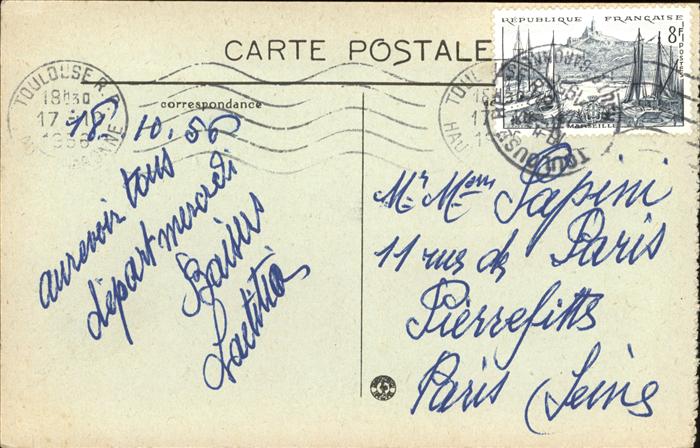 CARTE POSTALE
RÉPUBLIQUE FRANÇAISE
8F
POSTES
MARSEILLE
TOULOUSE R.P.
18H30
17-10
1956
correspondance
18.10.56
aurevoir tous
départ mercredi
Baisers
Laetitia
Mr Mme Papini
11 rue de Paris
Pierrefitte
Paris Seine